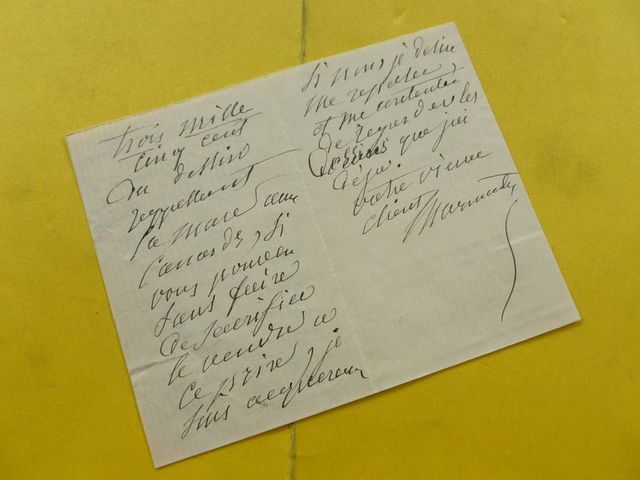 trois mille
cinq cent
du dessin
rappellant
la mare aux
canards, si
vous pouvez
sans faire
de sacrifice
le vendre a
ce prix, je
suis acquereur
si non je désire
me reposer
et me contenter
de regarder les
dessins que j'ai
déja.
votre vieux
client